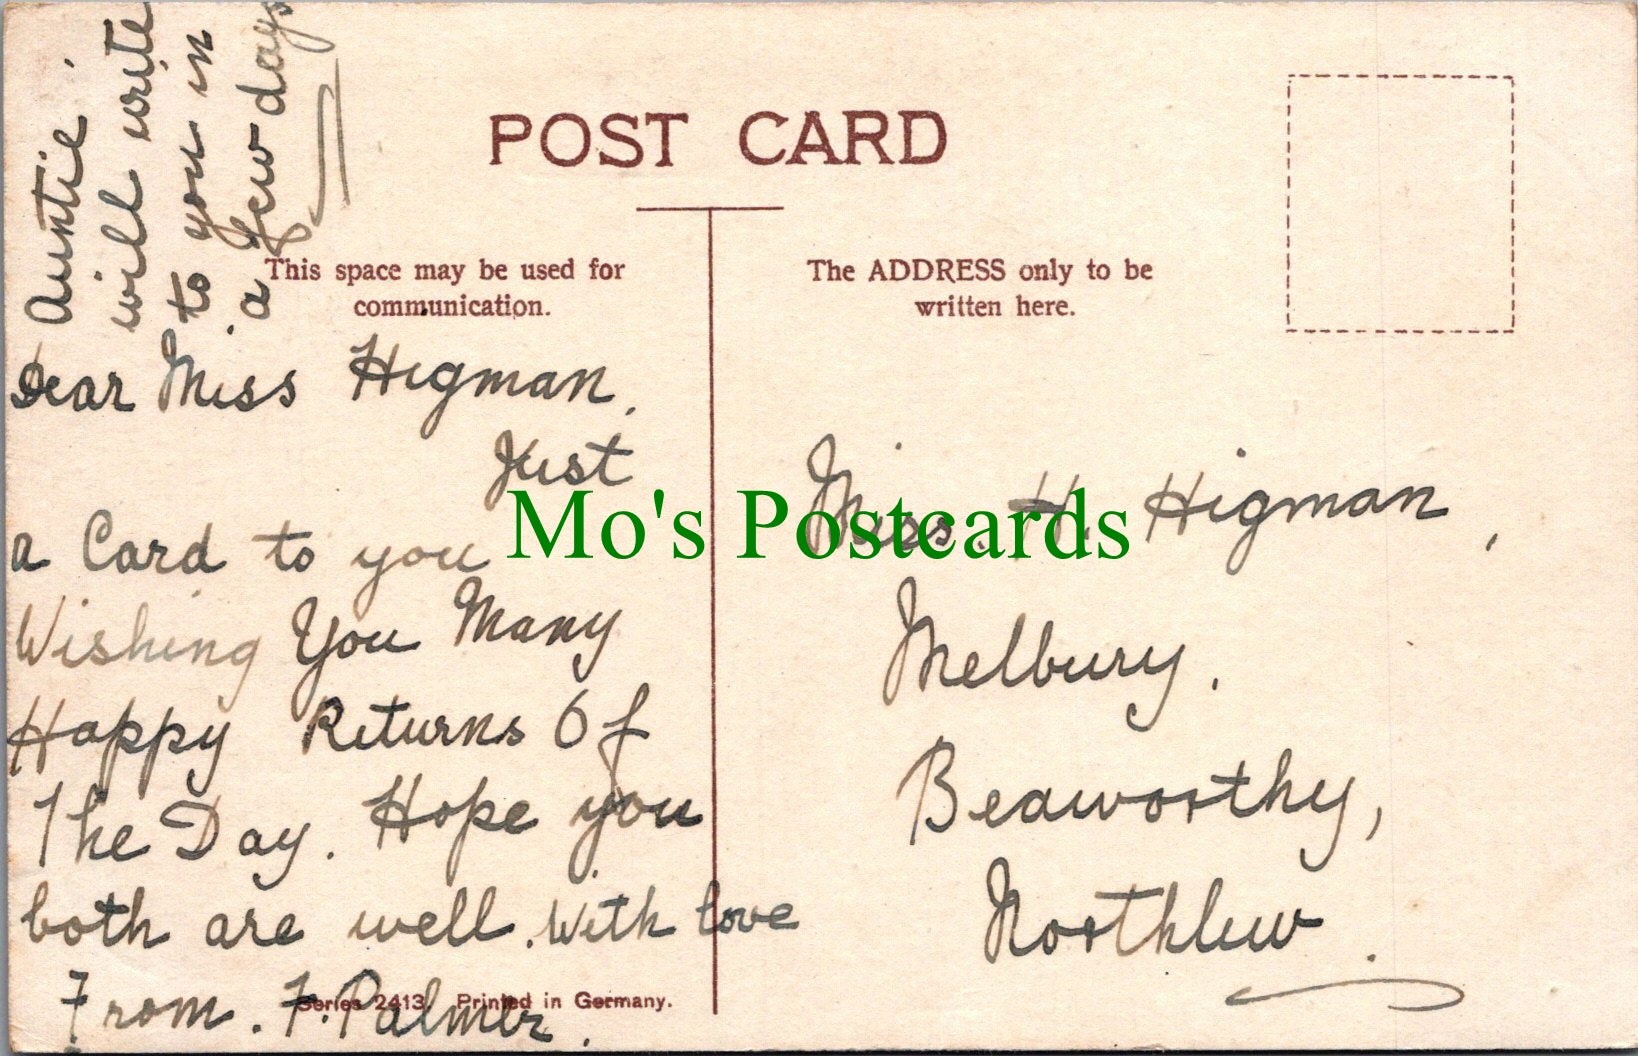 Auntie.
will write
to you in
a few days
POST CARD
This space may be used for
communication.
The ADDRESS only to be
written here.
Dear Miss Higman,
Just
a Card to you
Wishing You Many
Happy Returns Of
The Day. Hope you
both are well. With love
From. F. Palmer.
Series 2413. Printed in Germany.
Miss. H. Higman,
Melbury.
Beaworthy,
Northlew.
Mo's Postcards